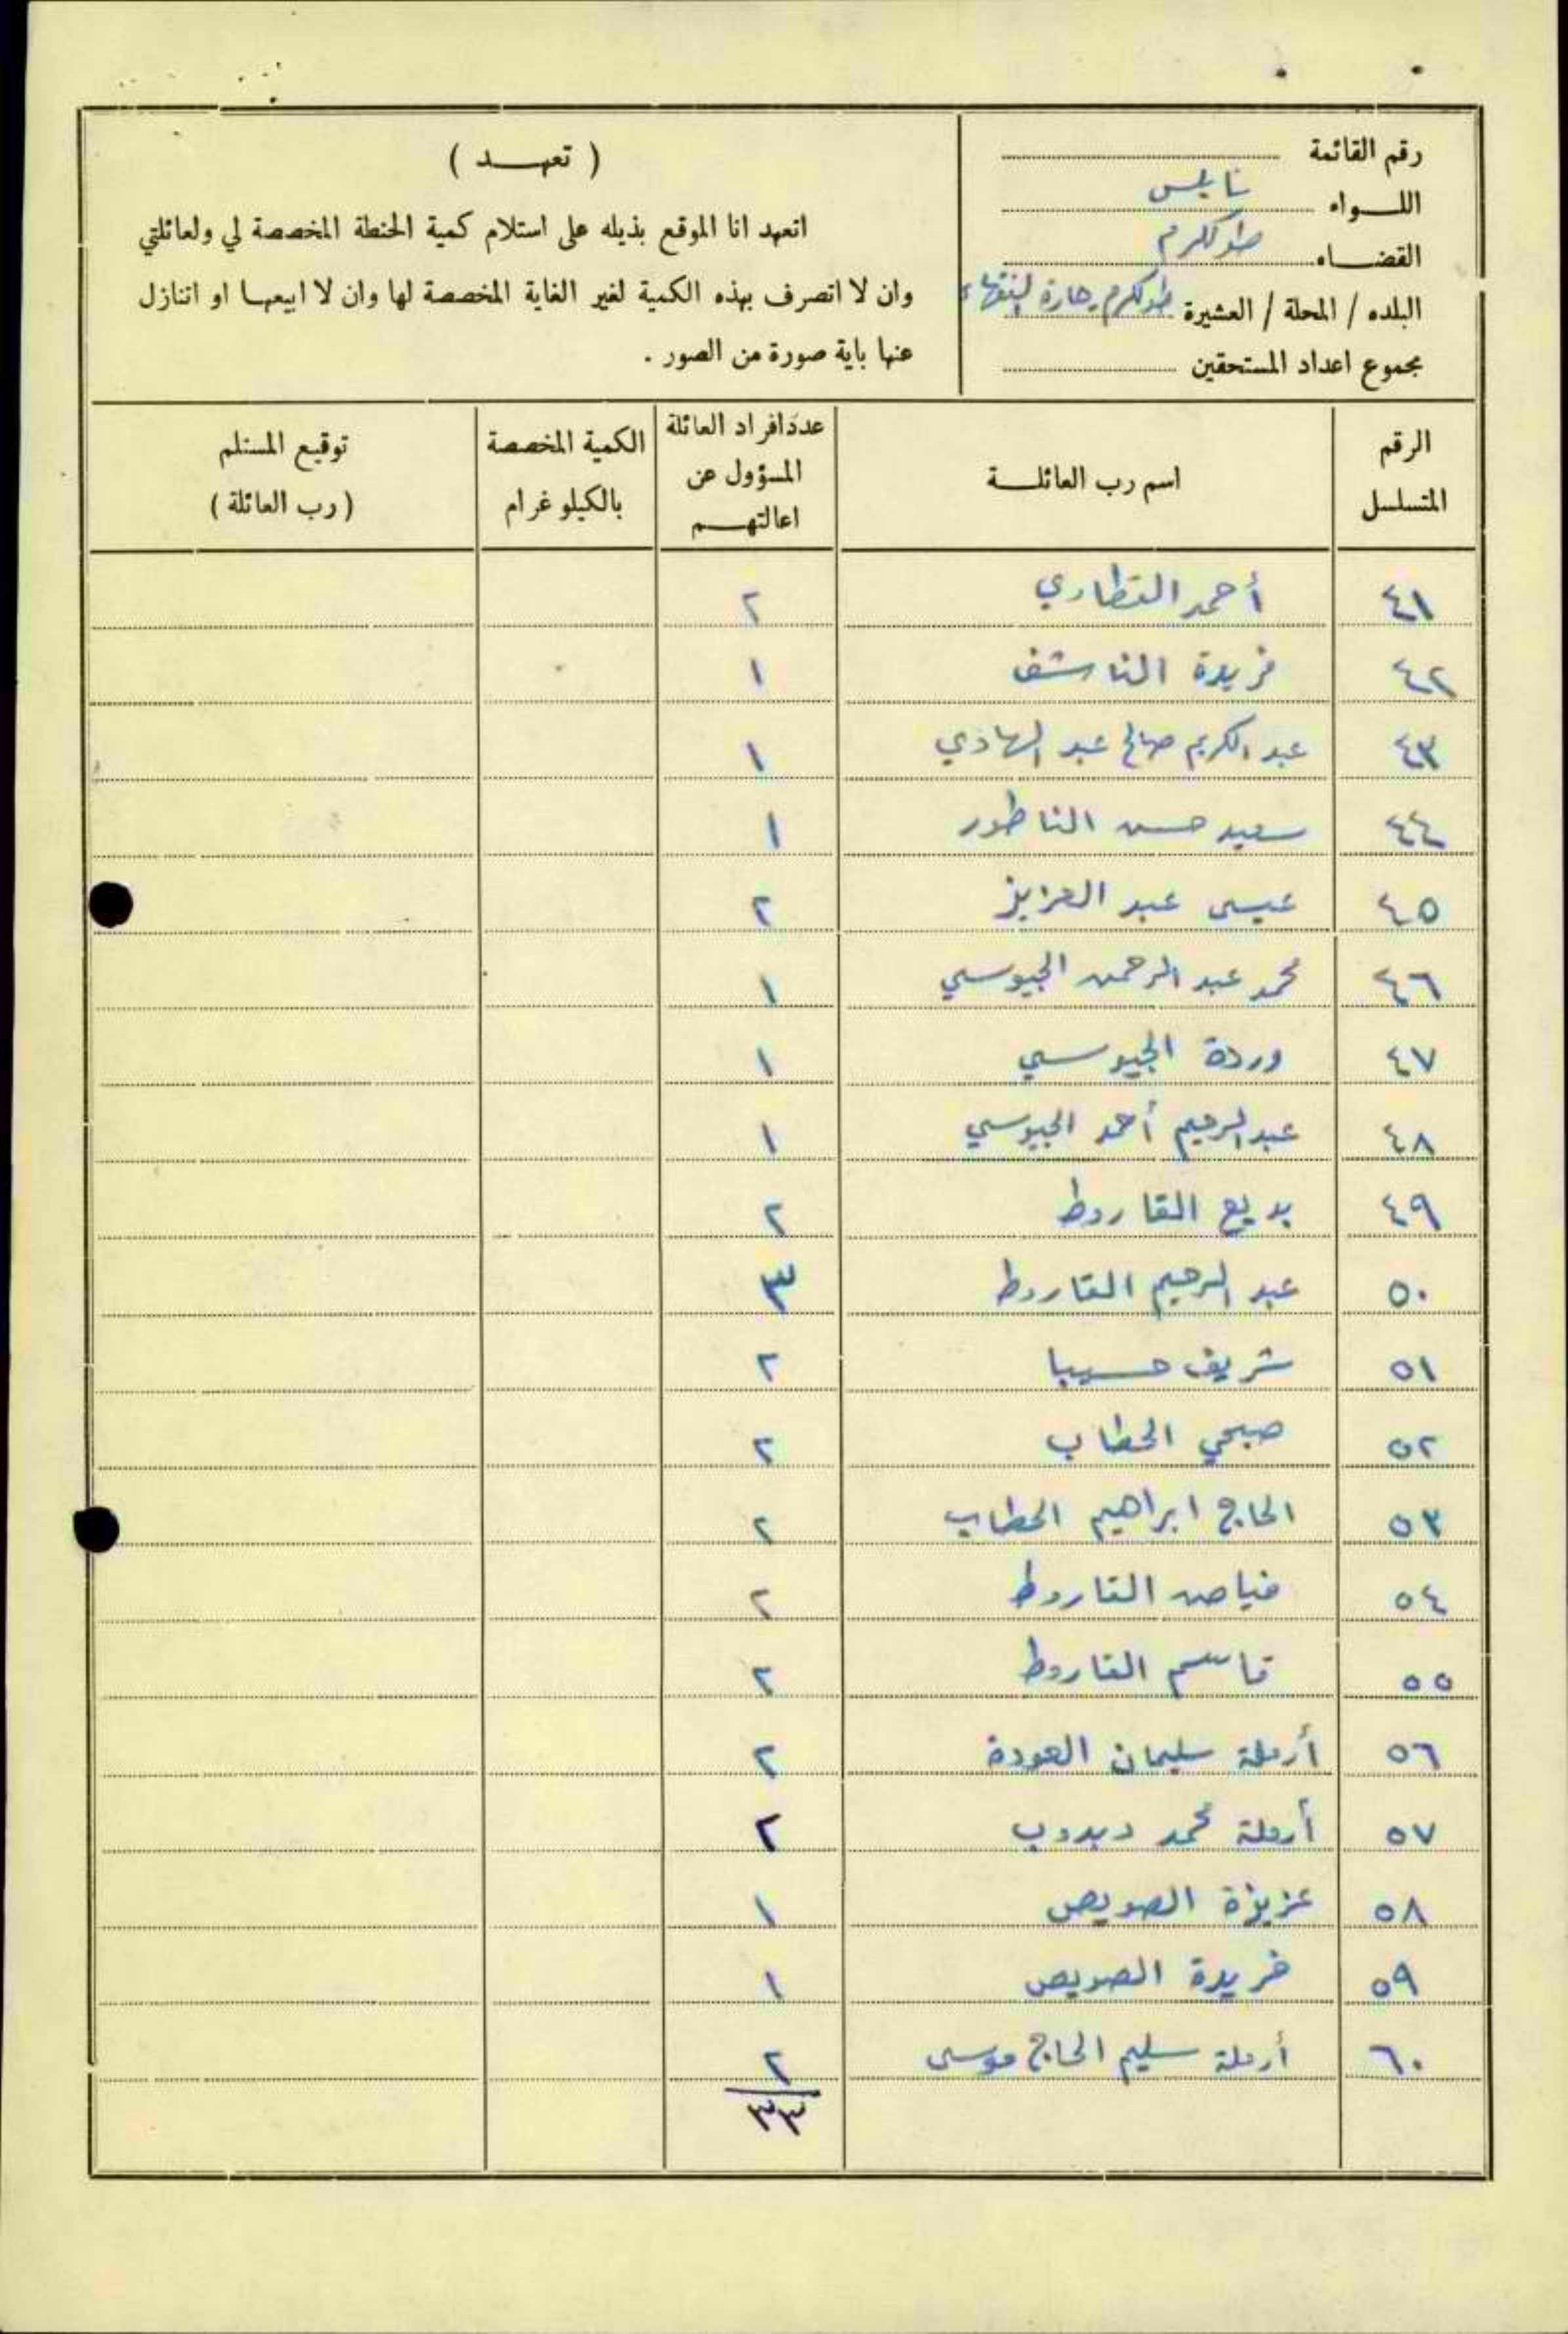 رقم القائمة
اللواء نابلس
القضاء طولكرم
البلده / المحلة / العشيرة طولكرم حارة الفقهاء
مجموع اعداد المستحقين
( تعهد )
اتعهد انا الموقع بذيله على استلام كمية الحنطة المخصصة لي ولعائلتي
وان لا اتصرف بهذه الكمية لغير الغاية المخصصة لها وان لا ابيعها او اتنازل
عنها باية صورة من الصور .
الرقم المتسلسل | اسم رب العائلة | عدد افراد العائلة المسؤول عن اعالتهم | الكمية المخصصة بالكيلو غرام | توقيع المستلم ( رب العائلة )
٤١ أحمد القطاوي ٢
٤٢ فريدة الناشف ١
٤٣ عبد الكريم صالح عبد الهادي ١
٤٤ سعيد حسن الناطور ١
٤٥ عيسى عبد العزيز ٢
٤٦ محمد عبد الرحمن الجيوسي ١
٤٧ وردة الجيوسي ١
٤٨ عبد الرحيم أحمد الجيوسي ١
٤٩ بديع القاروط ٢
٥٠ عبد الرحيم القاروط ٣
٥١ شريف حسيبا ٢
٥٢ صبحي الحطاب ٢
٥٣ الحاج ابراهيم الحطاب ٢
٥٤ القاروط ٢
٥٥ قاسم القاروط ٢
٥٦ أرملة سليمان العودة ٢
٥٧ أرملة محمد ديدوب ٢
٥٨ عزيزة الصويص ١
٥٩ فريدة الصويص ١
٦٠ أرملة سليم الحاج موسى ٢
٣٣